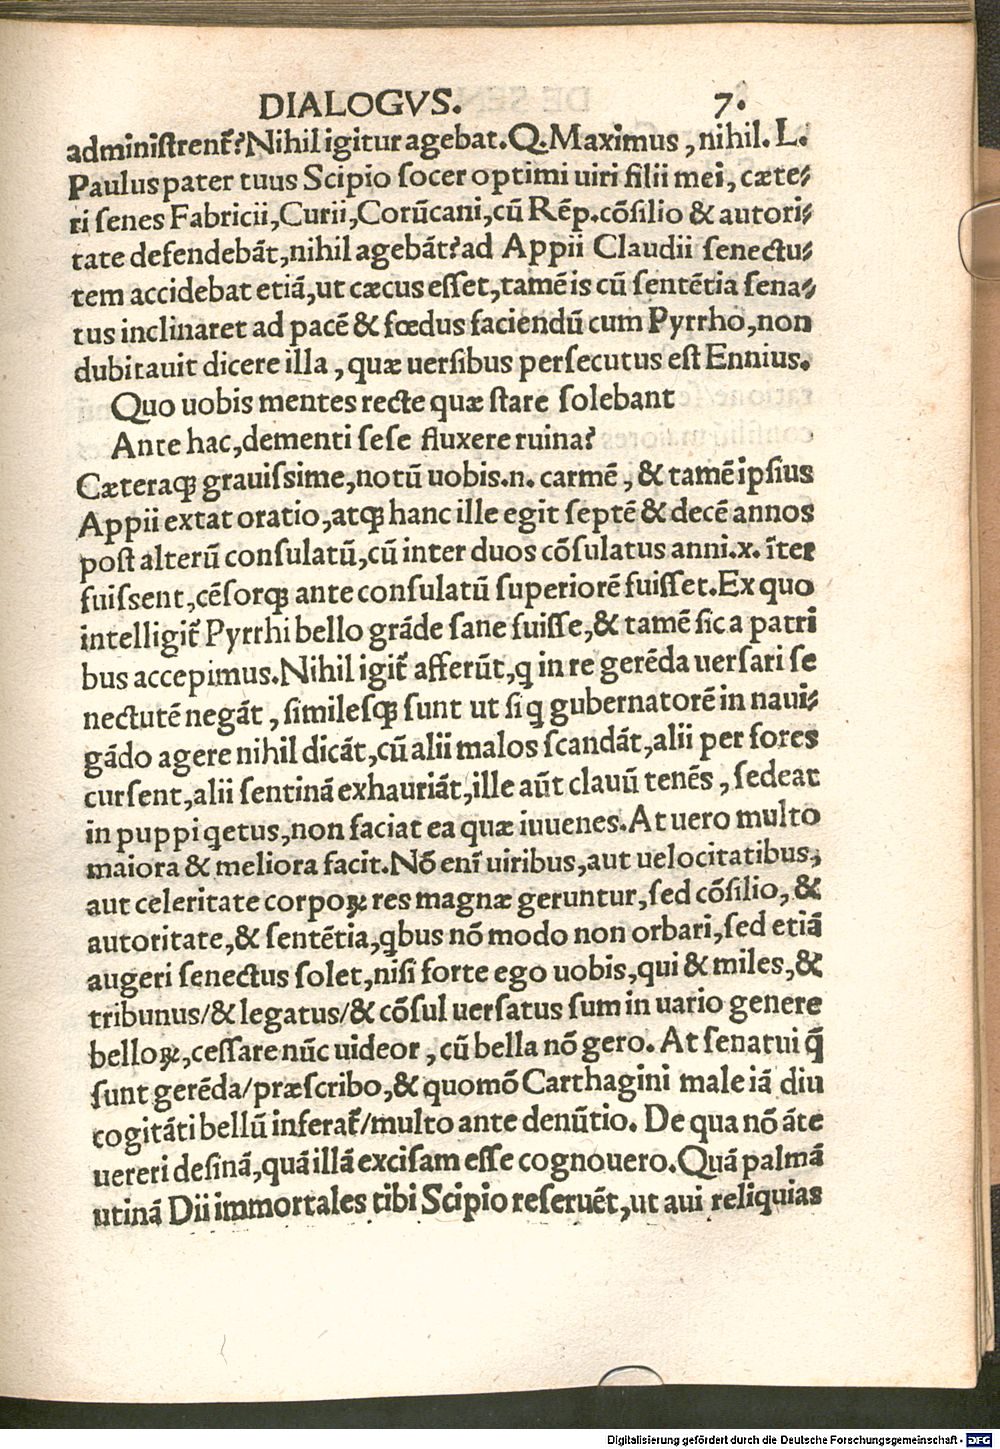 DIALOGVS. 7.
adminiſtrent᷑? Nihil igitur agebat. Q. Maximus, nihil. L.
Paulus pater tuus Scipio ſocer optimi uiri filii mei, cæte⸗
ri ſenes Fabricii, Curii, Corũcani, cũ Rẽp. cõſilio & autori⸗
tate defendebãt, nihil agebãt? ad Appii Claudii ſenectu⸗
tem accidebat etiã, ut cæcus eſſet, tamẽ is cũ ſentẽtia ſena⸗
tus inclinaret ad pacẽ & fœdus faciendũ cum Pyrrho, non
dubitauit dicere illa, quæ uerſibus perſecutus eſt Ennius.
Quo uobis mentes recte quæ ſtare ſolebant
Ante hac, dementi ſeſe fluxere ruina?
Cæteraqꝫ grauiſsime, notũ uobis. n. carmẽ, & tamẽ ipſius
Appii extat oratio, atqꝫ hanc ille egit ſeptẽ & decẽ annos
poſt alterũ conſulatũ, cũ inter duos cõſulatus anni. x. ĩter
fuiſsent, cẽſorqꝫ ante conſulatũ ſuperiorẽ fuiſſet. Ex quo
intelligit᷑ Pyrrhi bello grãde ſane fuiſſe, & tamẽ ſic a patri
bus accepimus. Nihil igit᷑ afferũt, q in re gerẽda uerſari ſe
nectutẽ negãt, ſimileſqꝫ ſunt ut ſi q gubernatorẽ in naui⸗
gãdo agere nihil dicãt, cũ alii malos ſcandãt, alii per fores
curſent, alii ſentinã exhauriãt, ille aũt clauũ tenẽs, ſedeat
in puppi qetus, non faciat ea quæ iuuenes. At uero multo
maiora & meliora facit. Nõ enĩ uiribus, aut uelocitatibus,
aut celeritate corpoꝝ res magnæ geruntur, ſed cõſilio, &
autoritate, & ſentẽtia, qbus nõ modo non orbari, ſed etiã
augeri ſenectus ſolet, niſi forte ego uobis, qui & miles, &
tribunus/ & legatus/ & cõſul uerſatus ſum in uario genere
belloꝝ, ceſſare nũc uideor, cũ bella nõ gero. At ſenatui q̃
ſunt gerẽda/ præſcribo, & quomõ Carthagini male iã diu
cogitãti bellũ inferat᷑/ multo ante denũtio. De qua nõ ãte
uereri deſinã, quã illã exciſam eſſe cognouero. Quã palmã
utinã Dii immortales tibi Scipio reſeruẽt, ut aui reliquias
Digitalisierung gefördert durch die Deutsche Forschungsgemeinschaft - DFG